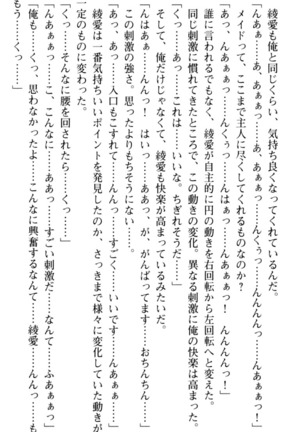 綾愛も俺と同じくらい、気持ち良くなってくれているんだ。
「んあぁっ！　あ、あぁぁっ……んくぅっ……んんんんっ……んあぁぁっ！
あっ、んあぁぁっ……んくぅぅっ……んはぁっ……んあぁぁっ！　んんんんっ！」
メイドって、ここまで主人に尽くしてくれるものなのか？
誰に言われるでもなく、綾愛が自主的に円の動きを右回転から左回転へと変えた。
同じ刺激に慣れてきたところで、この動きの変化。異なる刺激に俺の快楽は高まった。
「くっ……あっ……これは……いいな。ちぎれそうだ……」
そして、俺だけじゃなくて、綾愛も快楽が高まっているみたいだ。
「んはぁぁっ……んんっ！　はいっ……ああっ、が、がんばってます……おちんちん……」
この刺激の強さ。思ったよりもちそうにない……。
「あっ、あっ……入口もこすれて……んんっ……すごく……いいです……んあぁぁっ！」
綾愛は一番気持ちいいポイントを発見したのか、さっきまで様々に変化していた動きが
一定のものに変わった。
「くっ……そんなに腰を回されたら……くっ……」
「んあぁぁっ……こ、こんなに……ああっ……すごい刺激だ……なんて……ふあぁぁっ」
「俺も……くっ、思わなかったよ……こんなに興奮するなんて……綾愛……んんっ……も
もう……くっ……」